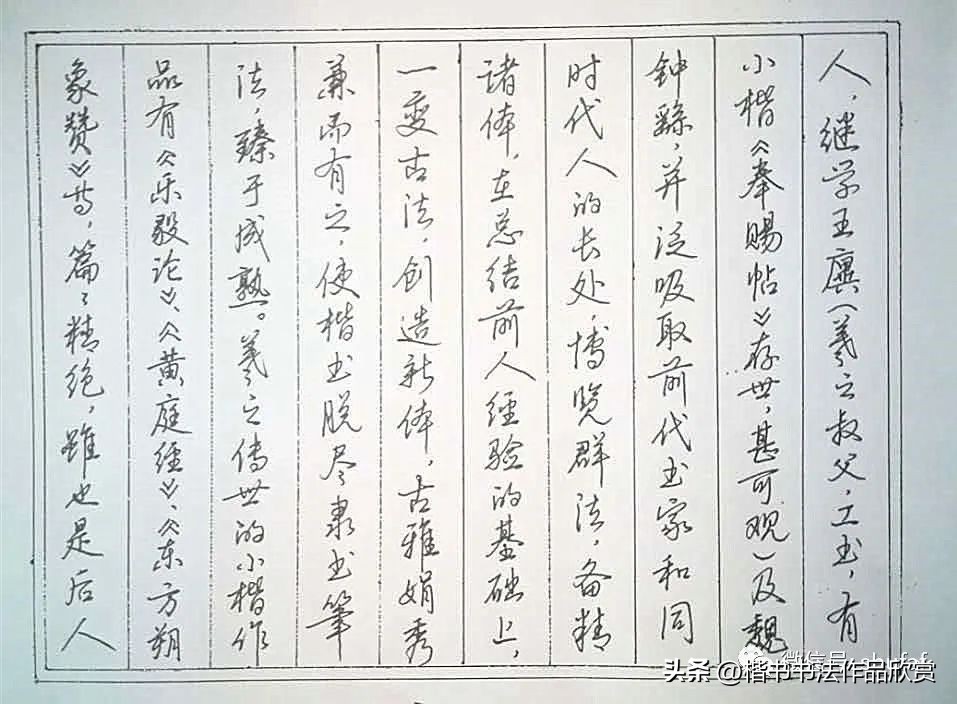 人，继学王廙（羲之叔父，工书，有
小楷《奉赐帖》存世，甚可观）及魏
钟繇，并泛吸取前代书家和同
时代人的长处，博览群法，备精
诸体，在总结前人经验的基础上，
一变古法，创造新体，古雅娟秀
兼而有之，使楷书脱尽隶书笔
法，臻于成熟。羲之传世的小楷作
品有《乐毅论》、《黄庭经》、《东方朔
象赞》等，篇篇精绝，虽也是后人
头条@楷书书法作品欣赏